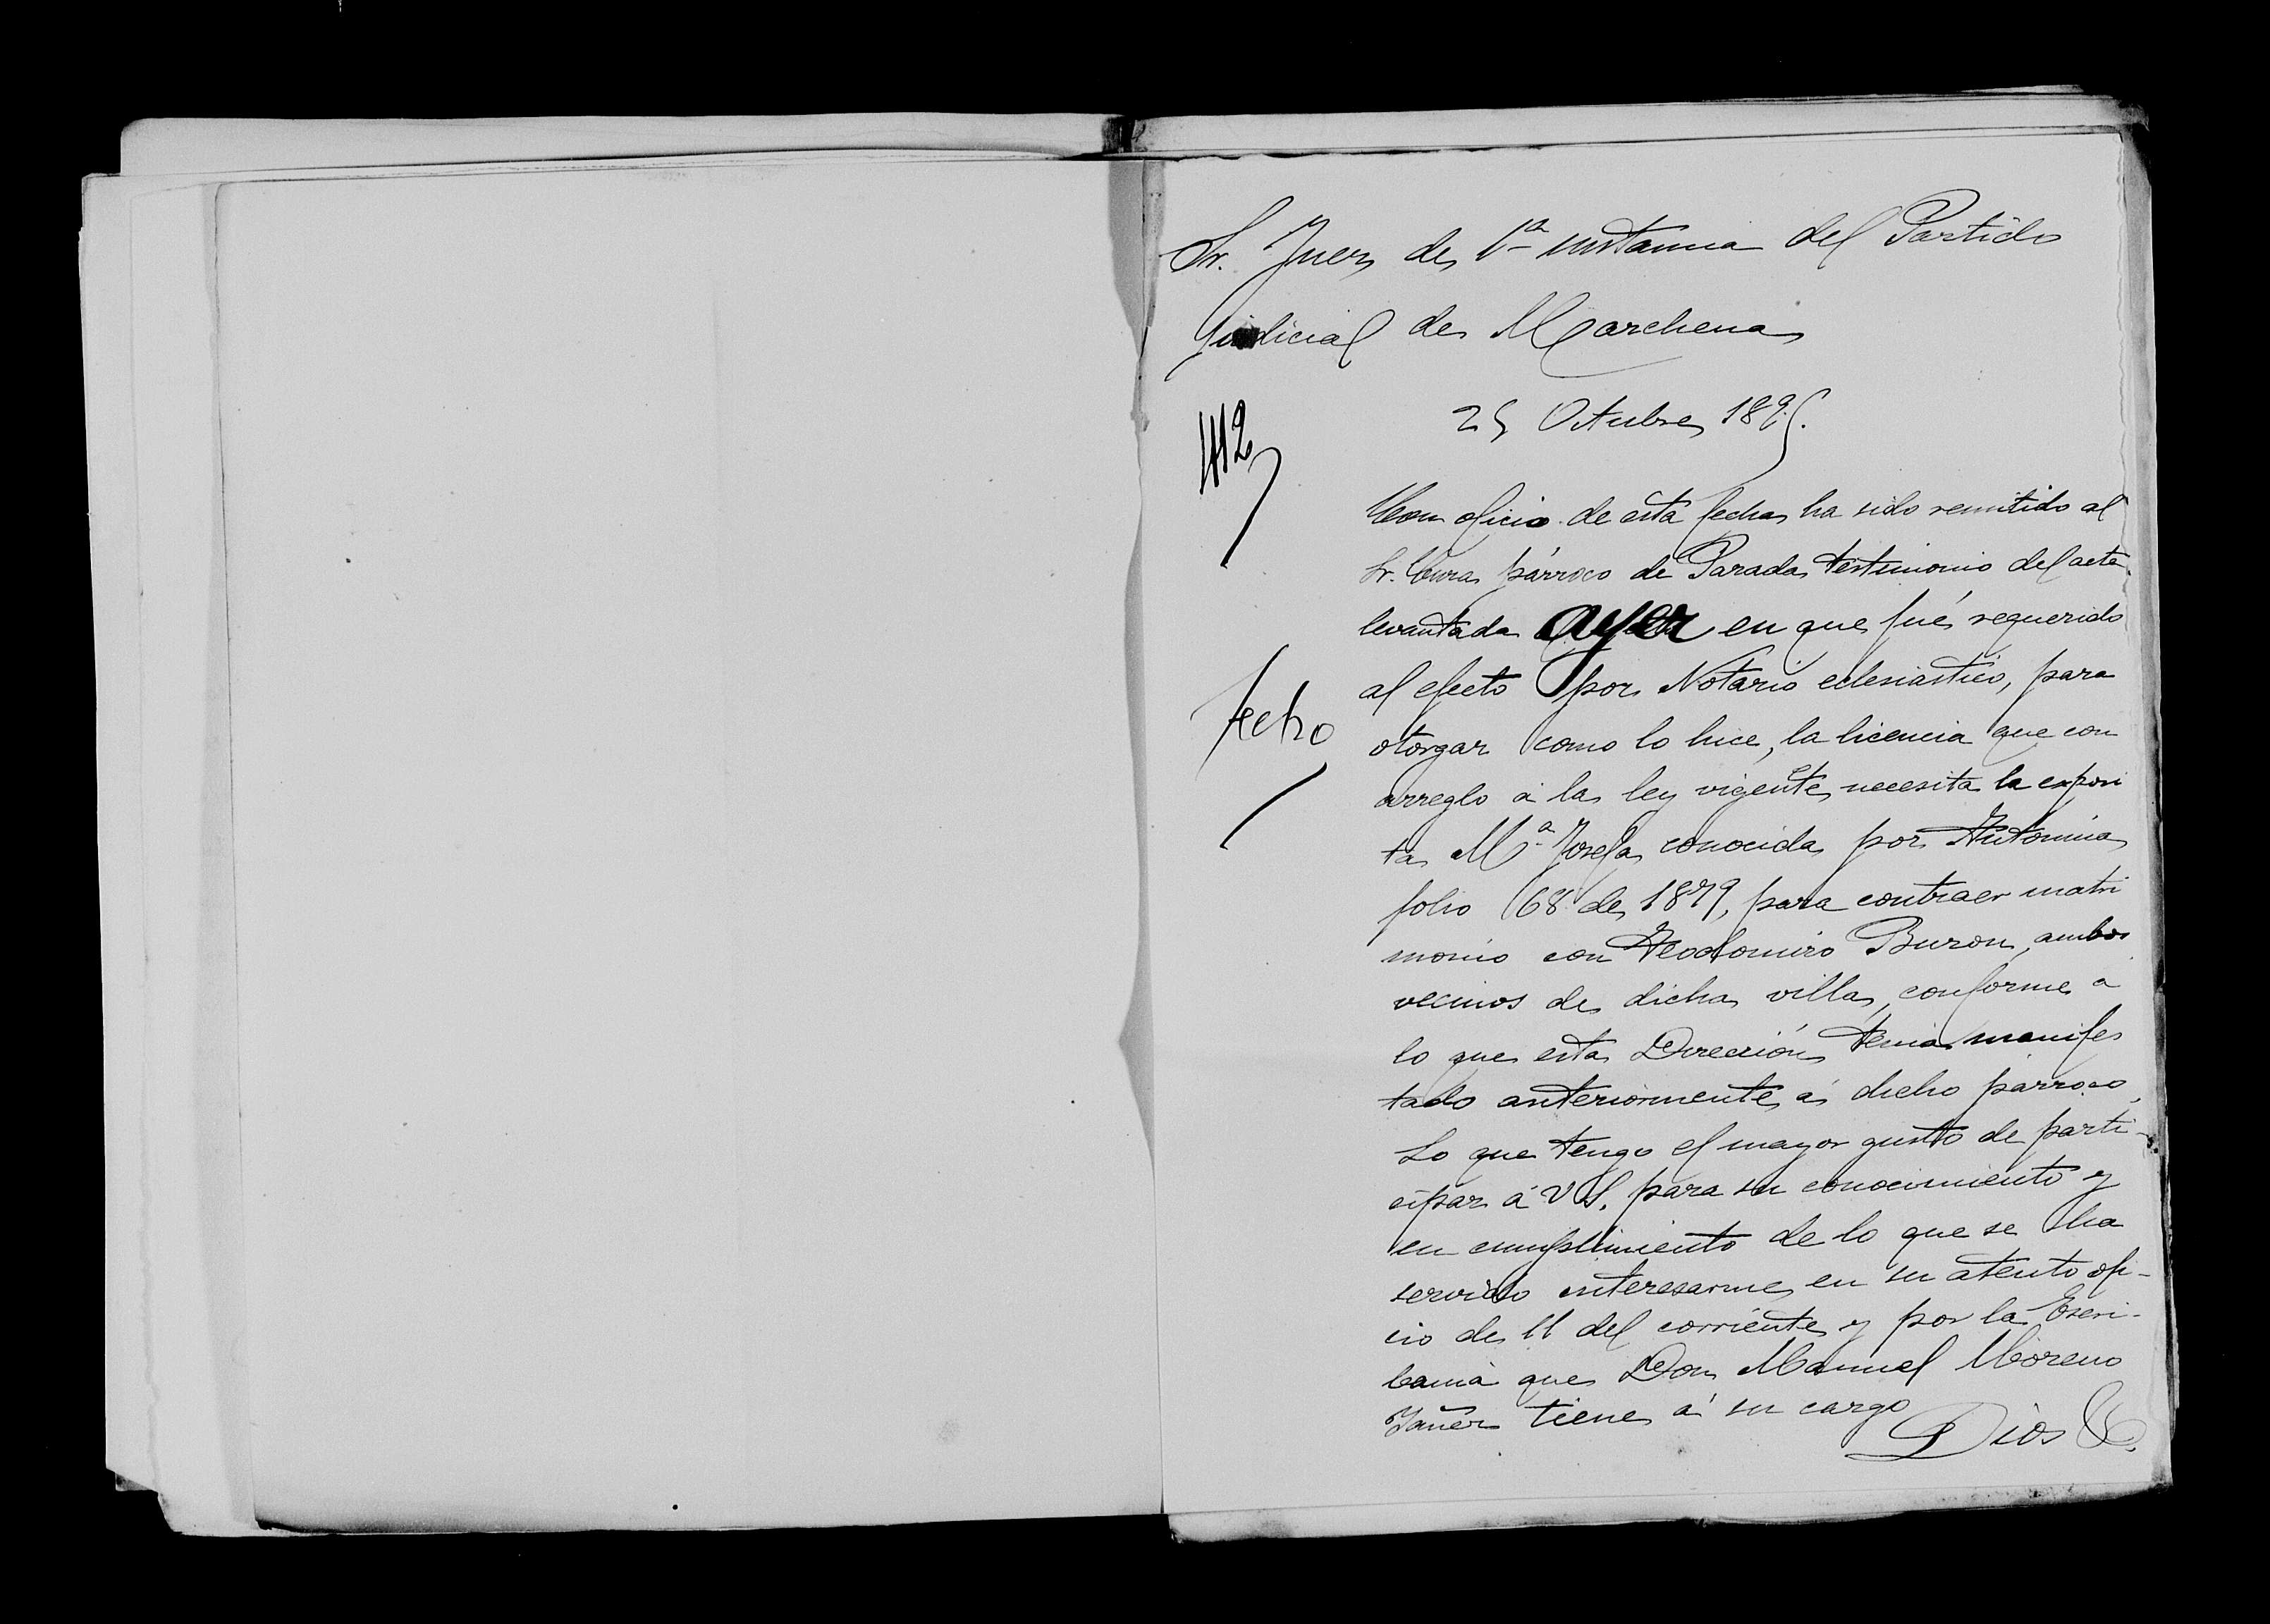 Sr. Juez de 1ª instancia del Partido
judicial de Marchena
25 Octubre 1895.
1112
Con oficio de esta fecha ha sido remitido al
Sr. Cura párroco de Paradas testimonio del acta
levantada ayer en que fué requerido
al efecto por Notario eclesiástico, para
fecho
otorgar como lo hice, la licencia que con
arreglo á la ley vigente necesita la exposi
ta Mª Josefa conocida por Antonia
folio 168 de 1879, para contraer matri
monio con Teodomiro Buron, ambos
vecinos de dicha villa, conforme a
lo que esta Dirección tenia manifes
tado anteriormente á dicho párroco,
Lo que tengo el mayor gusto de parti-
cipar á V S. para su conocimiento y
en cumplimiento de lo que se ha
servido interesarme en su atento ofi-
cio de 11 del corriente y por la Escri-
bania que Don Manuel Moreno
Yañez tiene á su cargo
Dios &.